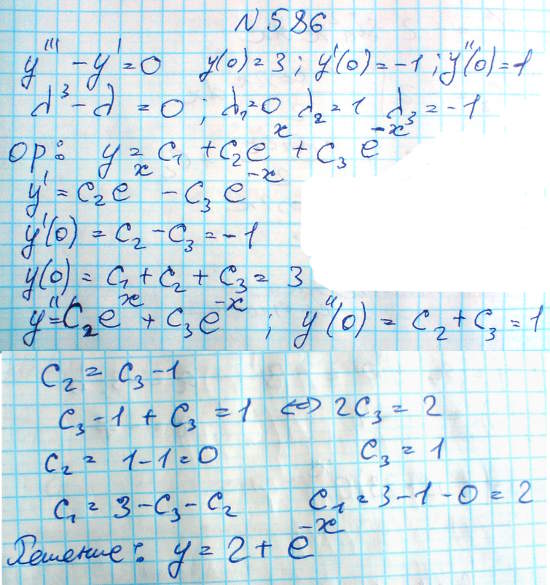 N 586
y''' - y' = 0   y(0) = 3 ; y'(0) = -1 ; y''(0) = 1
λ³ - λ = 0 ; λ₁ = 0 λ₂ = 1 λ₃ = -1
ор: y = C₁ + C₂eˣ + C₃e⁻ˣ
y' = C₂eˣ - C₃e⁻ˣ
y'(0) = C₂ - C₃ = -1
y(0) = C₁ + C₂ + C₃ = 3
y'' = C₂eˣ + C₃e⁻ˣ ; y''(0) = C₂ + C₃ = 1
C₂ = C₃ - 1
C₃ - 1 + C₃ = 1 ⇔ 2C₃ = 2
C₂ = 1 - 1 = 0   C₃ = 1
C₁ = 3 - C₃ - C₂   C₁ = 3 - 1 - 0 = 2
Решение: y = 2 + e⁻ˣ